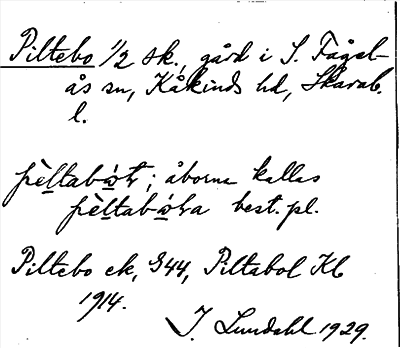 Piltebo 1/2 sk., gård i S. Fågel-
ås sn, Kåkinds hd, Skarab.
l.
; åborna kallas
best. pl.
Piltebo ek, G44, Piltabol Kb
1914.
J. Lundahl 1929.